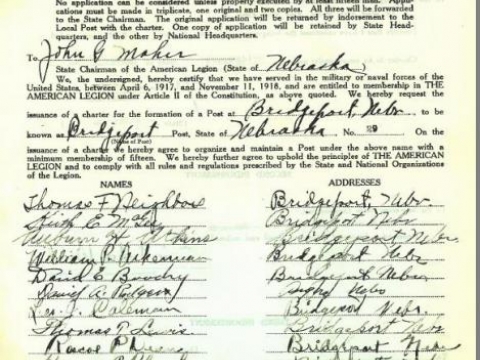 No application can be considered unless properly executed by at least fifteen men. Appli-
cations must be made in triplicate, one original and two copies. All three will be forwarded
to the State Chairman. The original application will be returned by indorsement to the
Local Post with the charter. One copy of application will be retained by State Head-
quarters, and the other by National Headquarters.
To John G Maher
State Chairman of the American Legion (State of Nebraska)
We, the undersigned, hereby certify that we have served in the military or naval forces of the
United States, between April 6, 1917, and November 11, 1918, and are entitled to membership in THE
AMERICAN LEGION under Article II of the Constitution, as above quoted. We hereby request the
issuance of a charter for the formation of a Post at Bridgeport, Nebr to be
known as Bridgeport Post, State of Nebraska No. 29 On the
(Name of Post)
issuance of the charter we hereby agree to organize and maintain a Post under the above name with a
minimum membership of fifteen. We hereby further agree to uphold the principles of THE AMERICAN
LEGION and to comply with all rules and regulations prescribed by the State and National Organizations
of the Legion.
NAMES ADDRESSES
Thomas F Neighbors Bridgeport, Nebr
Keith E Bridgeport Nebr
Auburn H Bridgeport Nebr.
William Bridgeport Nebr
David E Bridgeport Nebr
A. Nebr
Coleman Bridgeport Nebr.
Thomas T Lewis Bridgeport Nebr
Roscoe P Bridgeport Nebr